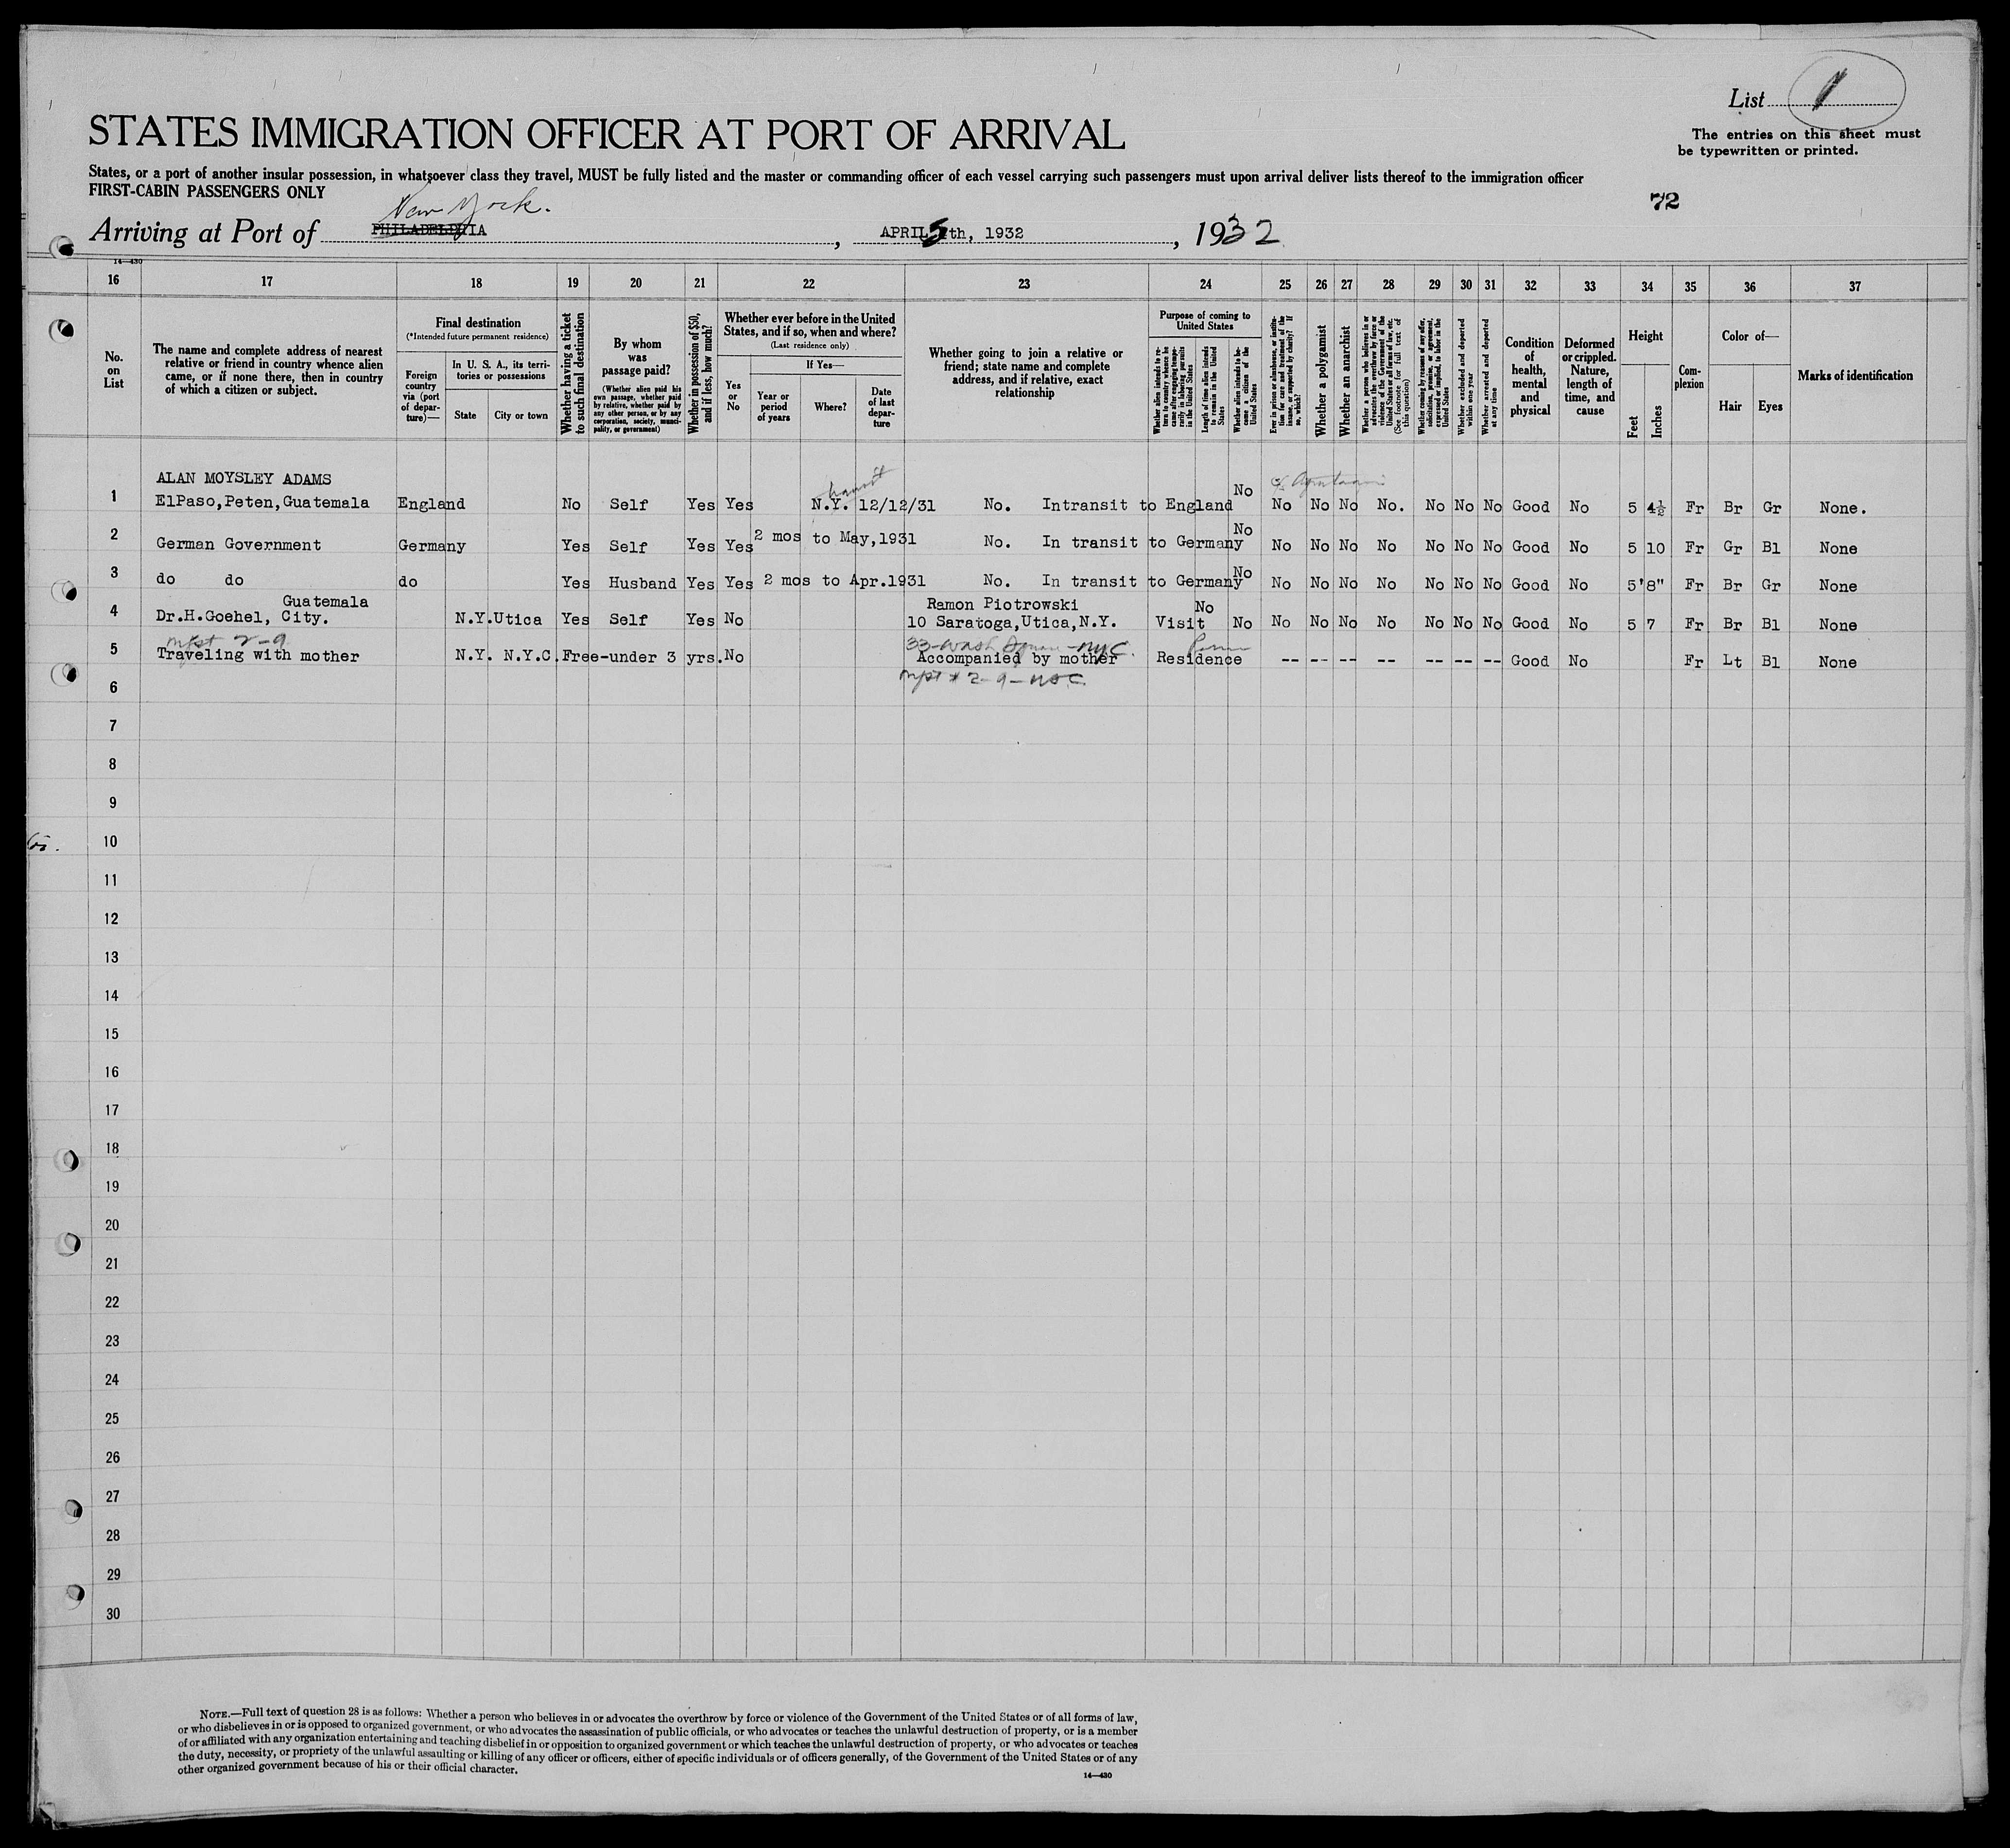 List 1
The entries on this sheet must
be typewritten or printed.
STATES IMMIGRATION OFFICER AT PORT OF ARRIVAL
States, or a port of another insular possession, in whatsoever class they travel, MUST be fully listed and the master or commanding officer of each vessel carrying such passengers must upon arrival deliver lists thereof to the immigration officer
FIRST-CABIN PASSENGERS ONLY
72
New York.
Arriving at Port of PHILADELPHIA, APRIL 5th, 1932, 1932
14—430
16 17 18 19 20 21 22 23 24 25 26 27 28 29 30 31 32 33 34 35 36 37
No. on List
The name and complete address of nearest
relative or friend in country whence alien
came, or if none there, then in country
of which a citizen or subject.
Final destination
(*Intended future permanent residence)
Foreign country via (port of departure)—
In U. S. A., its territories or possessions
State City or town
Whether having a ticket to such final destination
By whom was passage paid?
(Whether alien paid his own passage, whether paid by relative, whether paid by any other person, or by any corporation, society, municipality, or government)
Whether in possession of $50, and if less, how much?
Whether ever before in the United
States, and if so, when and where?
(Last residence only)
Yes or No
If Yes—
Year or period of years
Where?
Date of last departure
Whether going to join a relative or
friend; state name and complete
address, and if relative, exact
relationship
Purpose of coming to United States
Whether alien intends to return to country whence he came after engaging temporarily in laboring pursuits in the United States
Length of time alien intends to remain in the United States
Whether alien intends to become a citizen of the United States
Ever in prison or almshouse, or institution for care and treatment of the insane, or supported by charity? If so, which?
Whether a polygamist
Whether an anarchist
Whether a person who believes in or advocates the overthrow by force or violence of the Government of the United States or all forms of law, etc. (See footnote for full text of this question)
Whether coming by reason of any offer, solicitation, promise, or agreement, expressed or implied, to labor in the United States
Whether excluded and deported within one year
Whether arrested and deported at any time
Condition of health, mental and physical
Deformed or crippled. Nature, length of time, and cause
Height
Feet Inches
Complexion
Color of—
Hair Eyes
Marks of identification
ALAN MOYSLEY ADAMS
1 ElPaso,Peten,Guatemala England No Self Yes Yes N.Y. transit 12/12/31 No. Intransit to England No No No No No. No No No Good No 5 4½ Fr Br Gr None.
2 German Government Germany Yes Self Yes Yes 2 mos to May,1931 No. In transit to Germany No No No No No No No No Good No 5 10 Fr Gr Bl None
3 do do do Yes Husband Yes Yes 2 mos to Apr.1931 No. In transit to Germany No No No No No No No No Good No 5'8" Fr Br Gr None
Guatemala Ramon Piotrowski No
4 Dr.H.Goehel, City. N.Y.Utica Yes Self Yes No 10 Saratoga,Utica,N.Y. Visit No No No No No No No No Good No 5 7 Fr Br Bl None
2-9 33-Wash Square-NYC.
5 Traveling with mother N.Y. N.Y.C.Free-under 3 yrs.No Accompanied by mother Residence -- -- -- -- -- -- -- Good No Fr Lt Bl None
6
7
8
9
10
11
12
13
14
15
16
17
18
19
20
21
22
23
24
25
26
27
28
29
30
NOTE.—Full text of question 28 is as follows: Whether a person who believes in or advocates the overthrow by force or violence of the Government of the United States or of all forms of law,
or who disbelieves in or is opposed to organized government, or who advocates the assassination of public officials, or who advocates or teaches the unlawful destruction of property, or is a member
of or affiliated with any organization entertaining and teaching disbelief in or opposition to organized government or which teaches the unlawful destruction of property, or who advocates or teaches
the duty, necessity, or propriety of the unlawful assaulting or killing of any officer or officers, either of specific individuals or of officers generally, of the Government of the United States or of any
other organized government because of his or their official character.
14—430